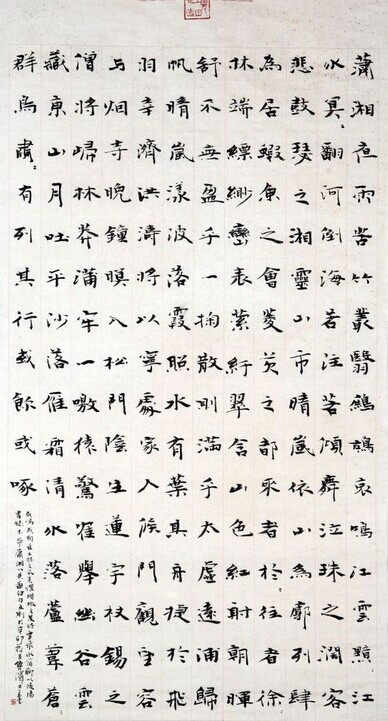 瀟湘夜雨苦竹叢翳鷓鴣哀鳴江雲黯江
水冥〻翻河倒海若注若傾舞泣珠之淵客
悲鼓瑟之湘靈山市晴嵐依山為郭列肆
為居鰕魚之會菱芡之都來者於往者徐
林端縹緲巒表縈紆翠含山色紅射朝暉
舒不無盈乎一掬散則滿乎太虛遠浦歸
帆晴嵐漾波落霞照水有葉其舟捷於飛
羽幸濟洪濤將以寧處家人候門觀望容
与烟寺晚鐘暝入松門陰生蓮宇杖錫之
僧將歸林莽蒲牢一噭猿驚雀舉幽谷雲
藏東山月吐平沙落雁霜清水落蘆葦蒼
群烏肅〻有列其行或飲或啄